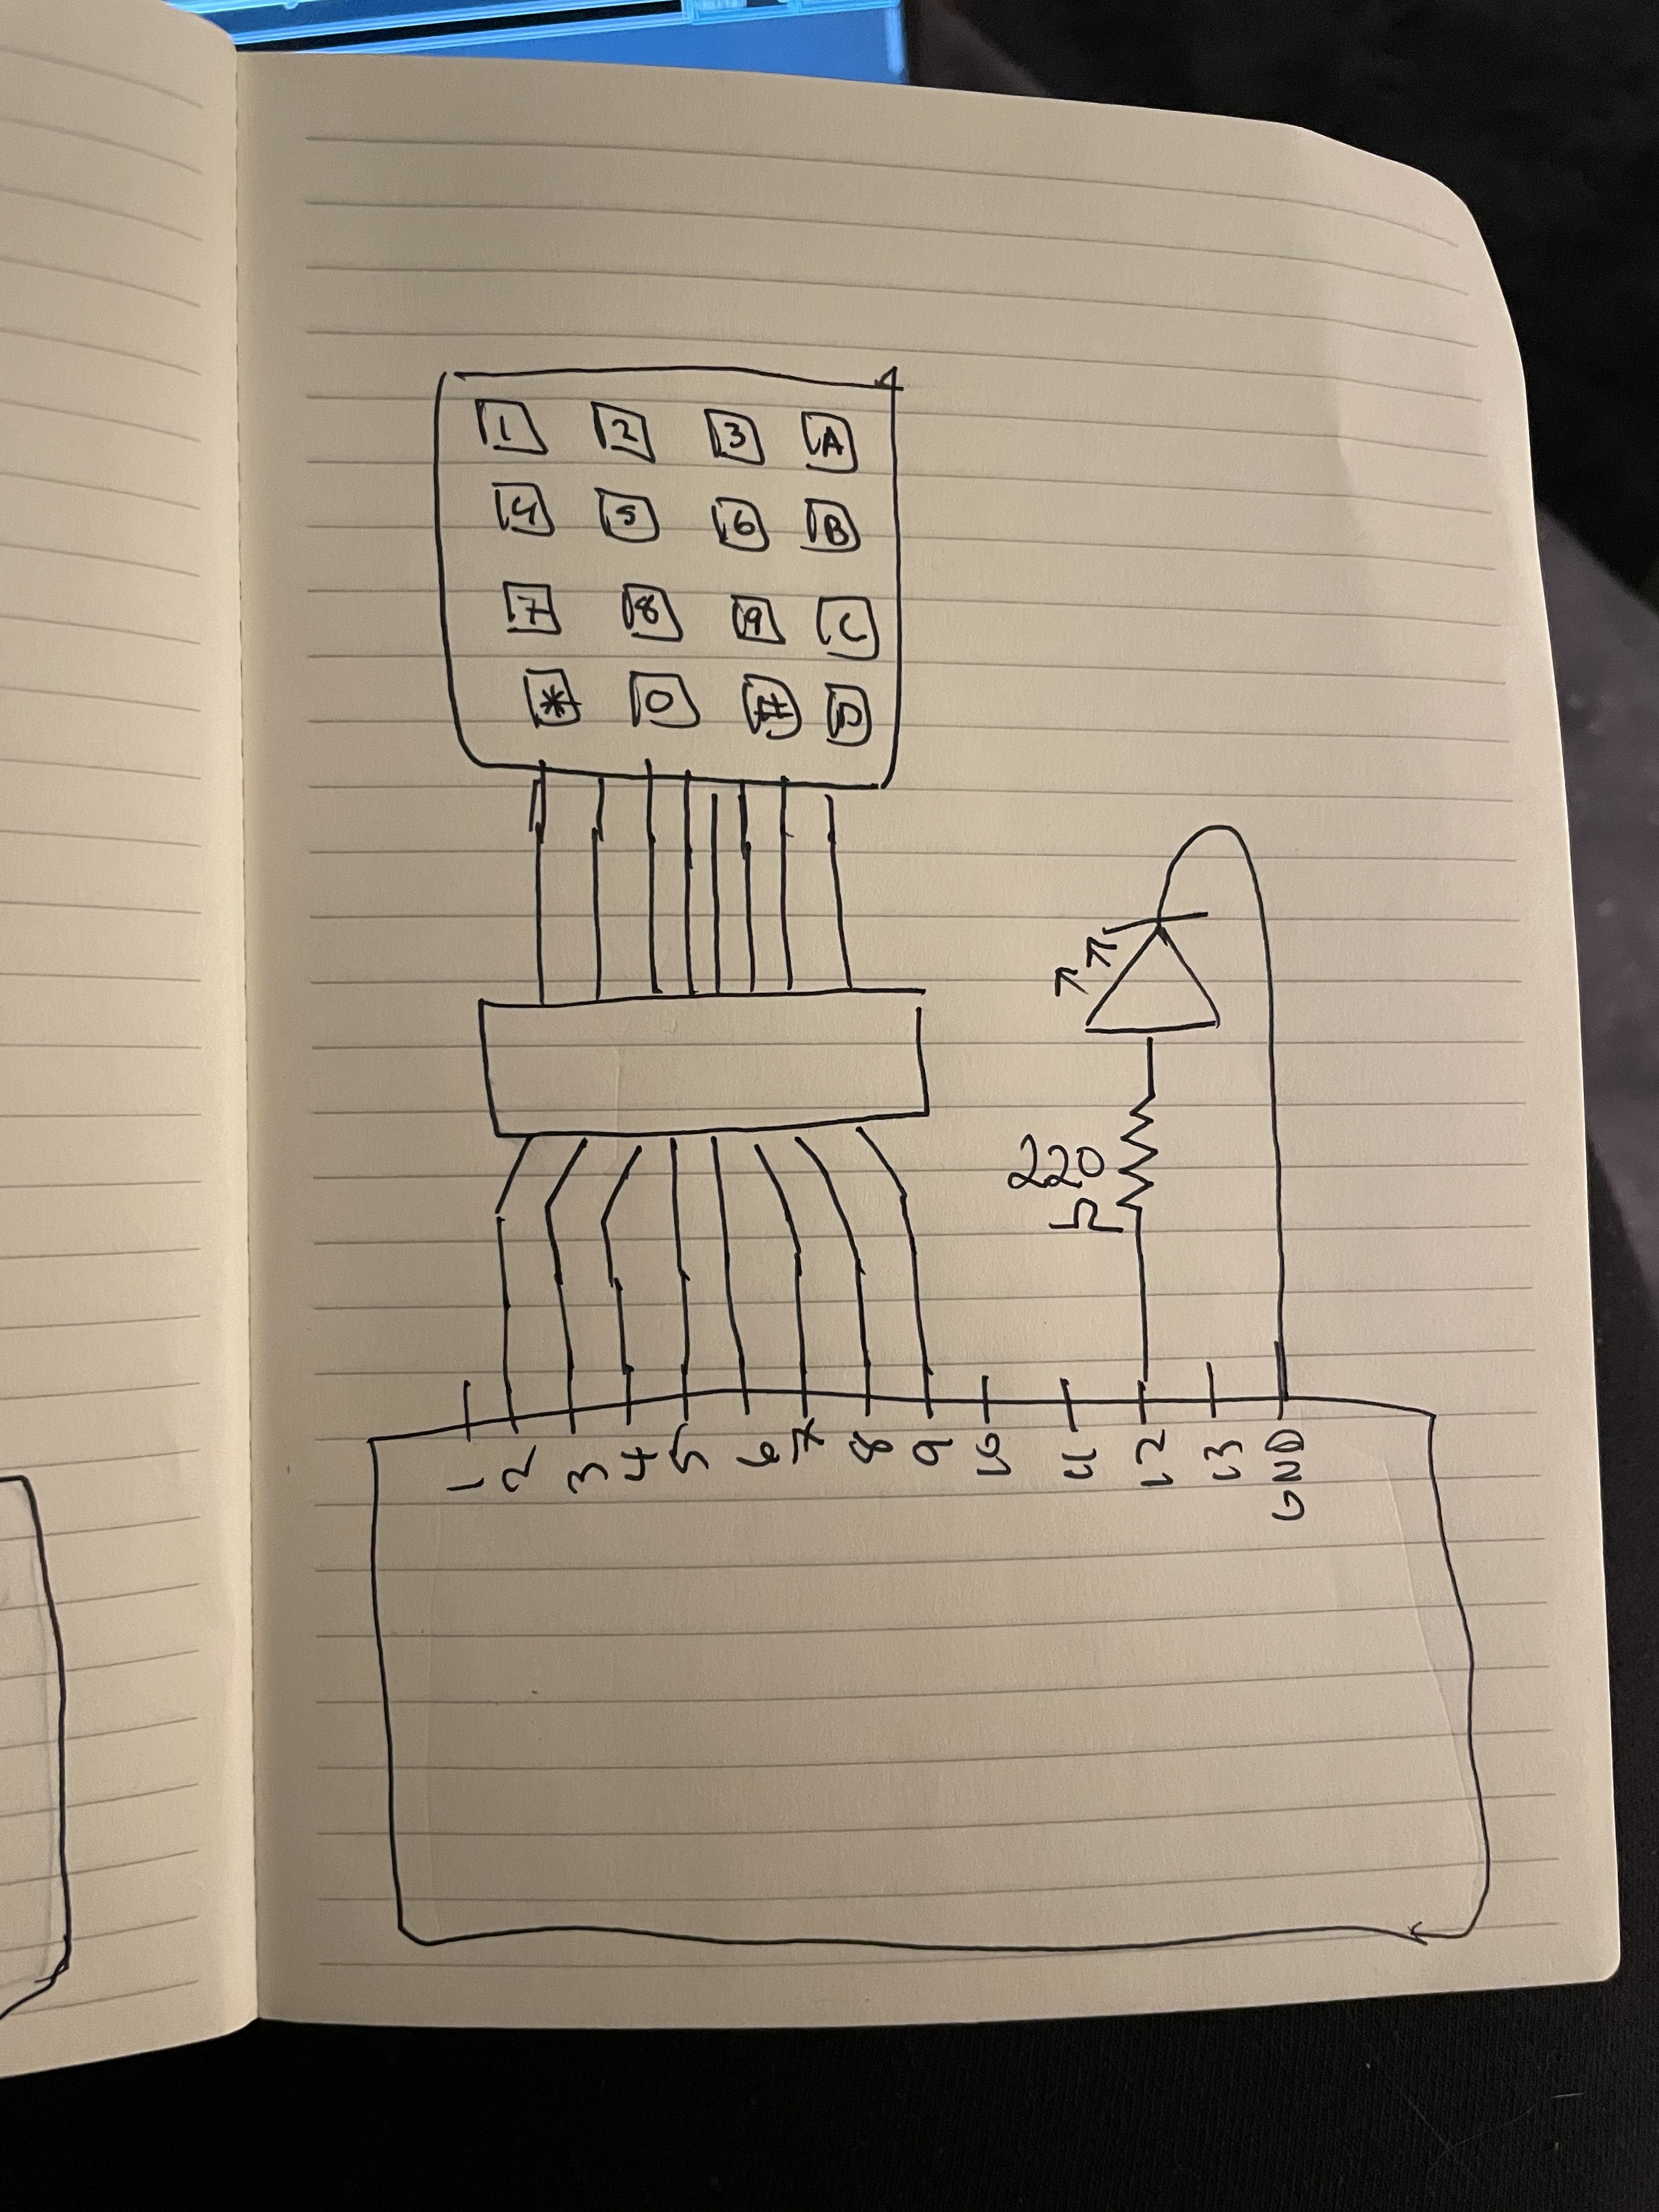 1 2 3 A
4 5 6 B
7 8 9 C
* 0 # D
220
Ω
1 2 3 4 5 6 7 8 9 10 11 12 13 GND